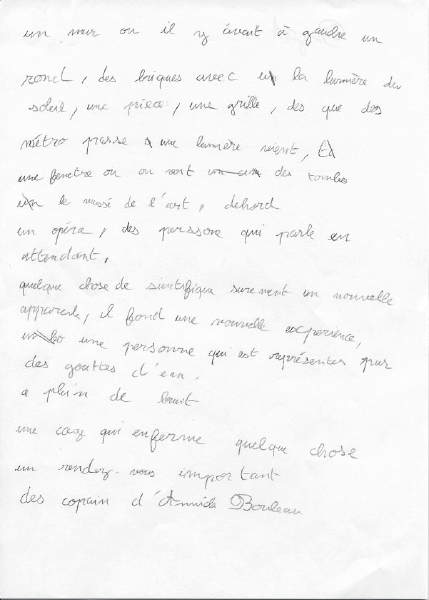 un mur ou il y avait à gaudre un
rond, des briques avec la lumière du
soleil, une pièce, une grille, des que des
métro passe une lumière vient,
une fenetre ou on voit des tombes
le musé de l'art, dehord
un opéra, des personne qui parle en
attendant,
quelque chose de sientifique surement un nouvelle
appareile, il fond une nouvelle experience,
une personne qui est représenter par
des gouttes d'eau.
a plein de bruit
une cage qui enferme quelque chose
un rendez-vous important
des copain d'Armida Bouleau